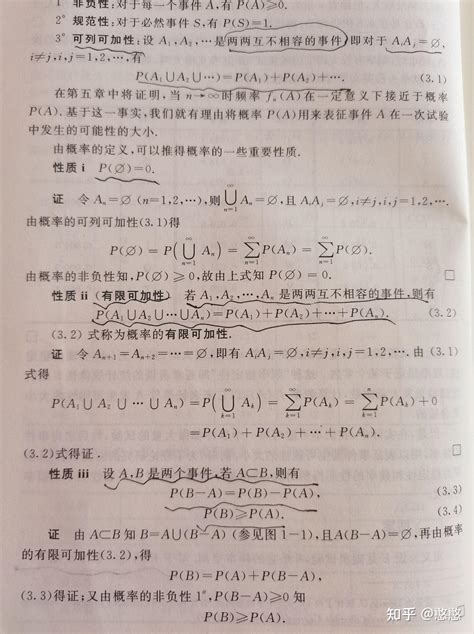 1° 非负性:对于每一个事件A,有P(A)≥0.
2° 规范性:对于必然事件S,有P(S)=1.
3° 可列可加性:设A₁,A₂,⋯是两两互不相容的事件,即对于AᵢAⱼ=∅,
i≠j,i,j=1,2,⋯,有
P(A₁∪A₂∪⋯)=P(A₁)+P(A₂)+⋯. (3.1)
在第五章中将证明,当n→∞时频率fₙ(A)在一定意义下接近于概率
P(A).基于这一事实,我们就有理由将概率P(A)用来表征事件A在一次试验
中发生的可能性的大小.
由概率的定义,可以推得概率的一些重要性质.
性质 i P(∅)=0.
证 令Aₙ=∅ (n=1,2,⋯),则⋃_{n=1}^{∞}Aₙ=∅,且AᵢAⱼ=∅,i≠j,i,j=1,2,⋯.
由概率的可列可加性(3.1)得
P(∅)=P(⋃_{n=1}^{∞}Aₙ)=∑_{n=1}^{∞}P(Aₙ)=∑_{n=1}^{∞}P(∅).
由概率的非负性知,P(∅)≥0,故由上式知P(∅)=0. □
性质 ii (有限可加性) 若A₁,A₂,⋯,Aₙ是两两互不相容的事件,则有
P(A₁∪A₂∪⋯∪Aₙ)=P(A₁)+P(A₂)+⋯+P(Aₙ). (3.2)
(3.2)式称为概率的有限可加性.
证 令Aₙ₊₁=Aₙ₊₂=⋯=∅,即有AᵢAⱼ=∅,i≠j,i,j=1,2,⋯.由(3.1)
式得
P(A₁∪A₂∪⋯∪Aₙ)=P(⋃_{k=1}^{∞}Aₖ)=∑_{k=1}^{∞}P(Aₖ)=∑_{k=1}^{n}P(Aₖ)+0
=P(A₁)+P(A₂)+⋯+P(Aₙ).
(3.2)式得证. □
性质 iii 设A,B是两个事件,若A⊂B,则有
P(B−A)=P(B)−P(A), (3.3)
P(B)≥P(A). (3.4)
证 由A⊂B知B=A∪(B−A) (参见图1−1),且A(B−A)=∅,再由概率
的有限可加性(3.2),得
P(B)=P(A)+P(B−A),
(3.3)得证;又由概率的非负性1°,P(B−A)≥0知
P(B)≥P(A). □
知乎 @憨憨